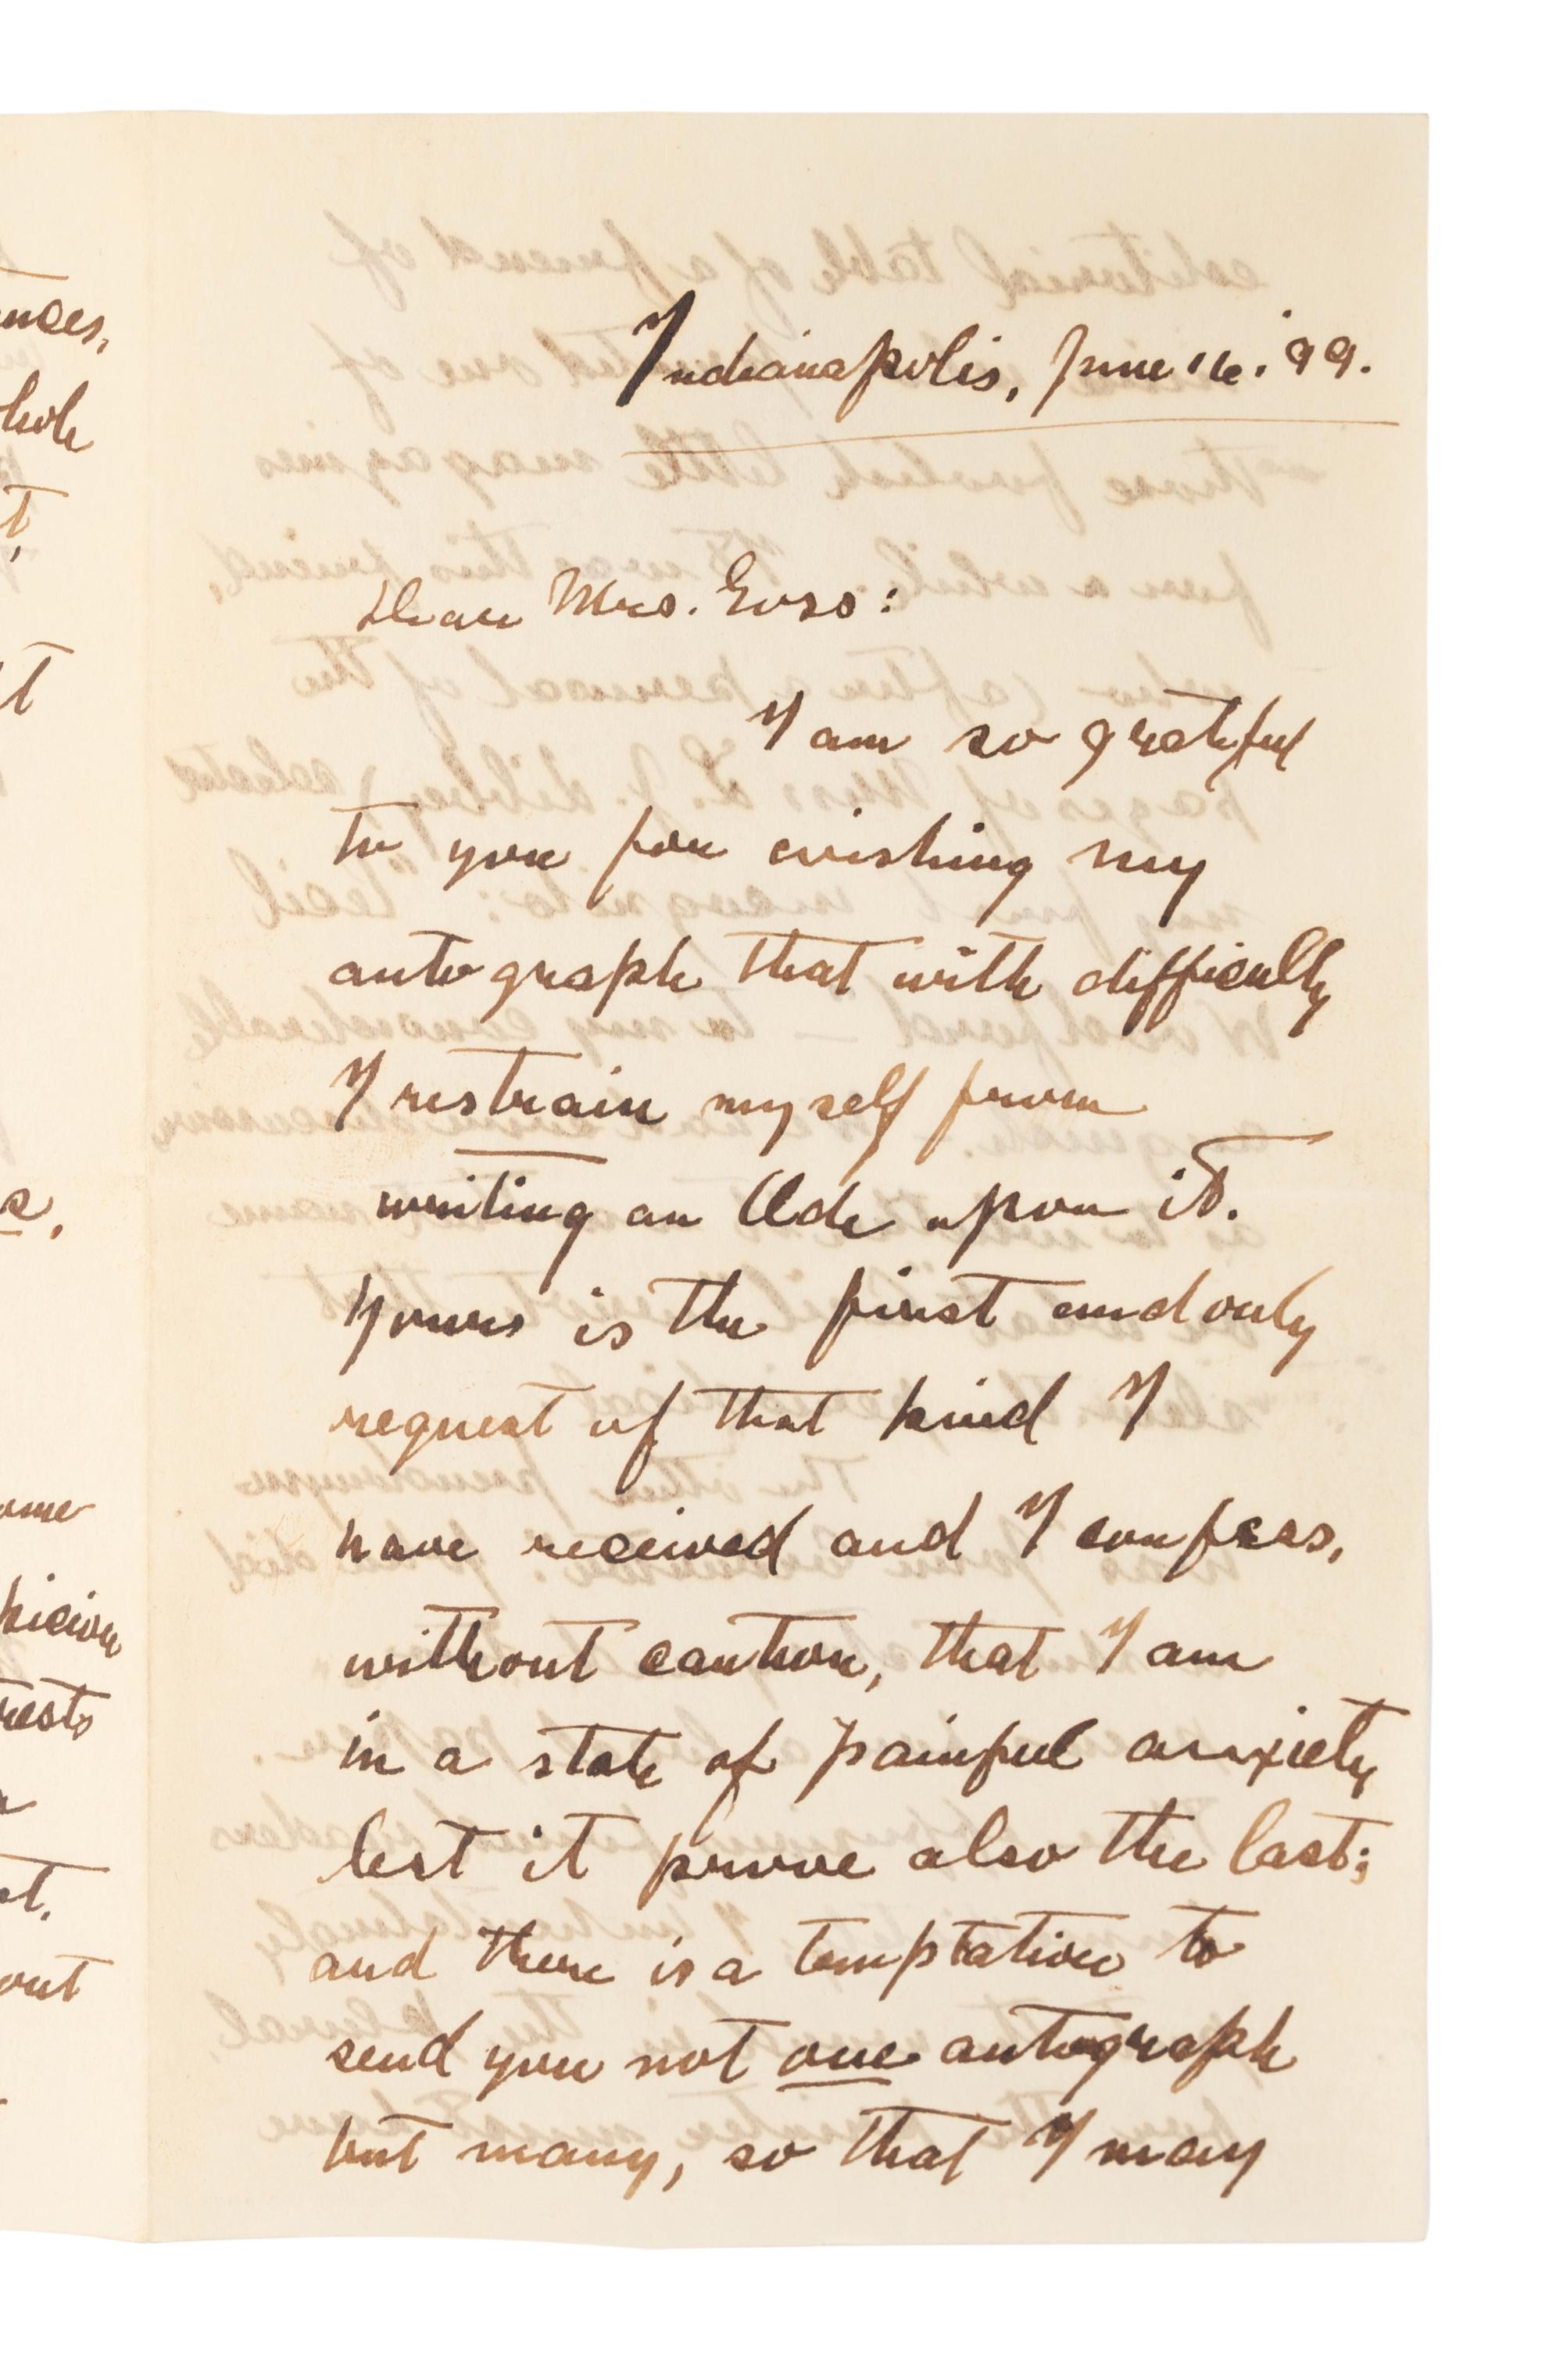 Indianapolis, June 16. '99.
Dear Mrs. Goss:
I am so grateful
to you for wishing my
autograph that with difficulty
I restrain myself from
writing an Ode upon it.
Yours is the first and only
request of that kind I
have received and I confess,
without caution, that I am
in a state of painful anxiety
lest it prove also the last;
and there is a temptation to
send you not one autograph
but many, so that I may